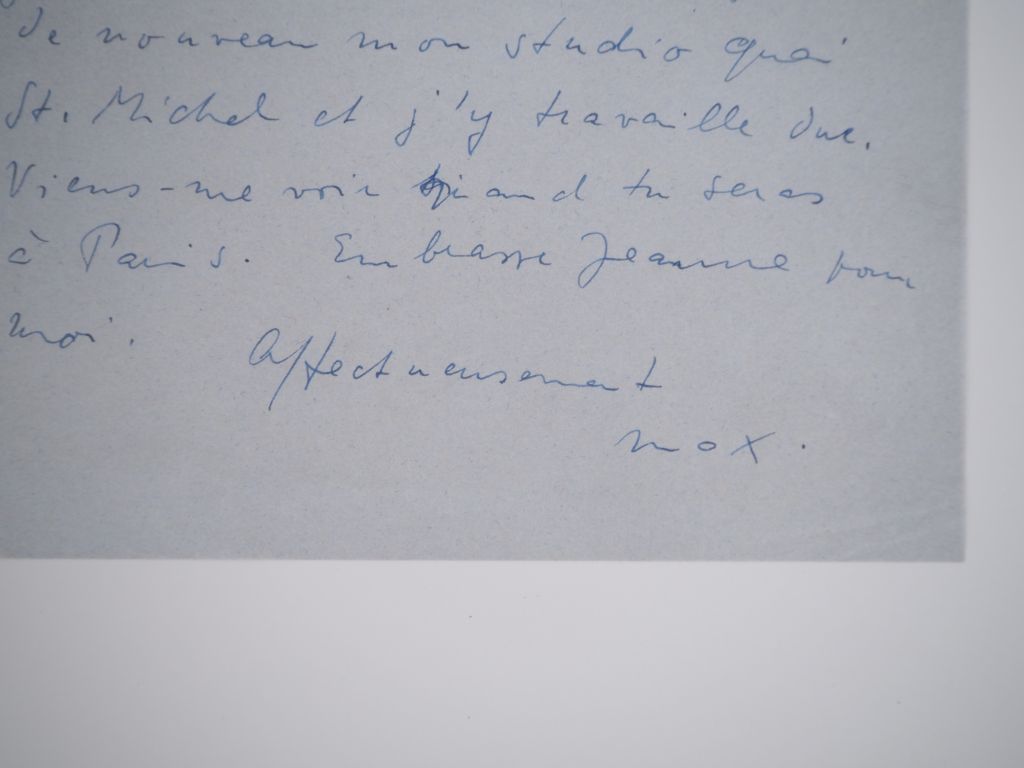 de nouveau mon studio quai
St. Michel et j'y travaille dur.
Viens-me voir quand tu seras
à Paris. Embrasse Jeanne pour
moi.
Affectueusement
max.